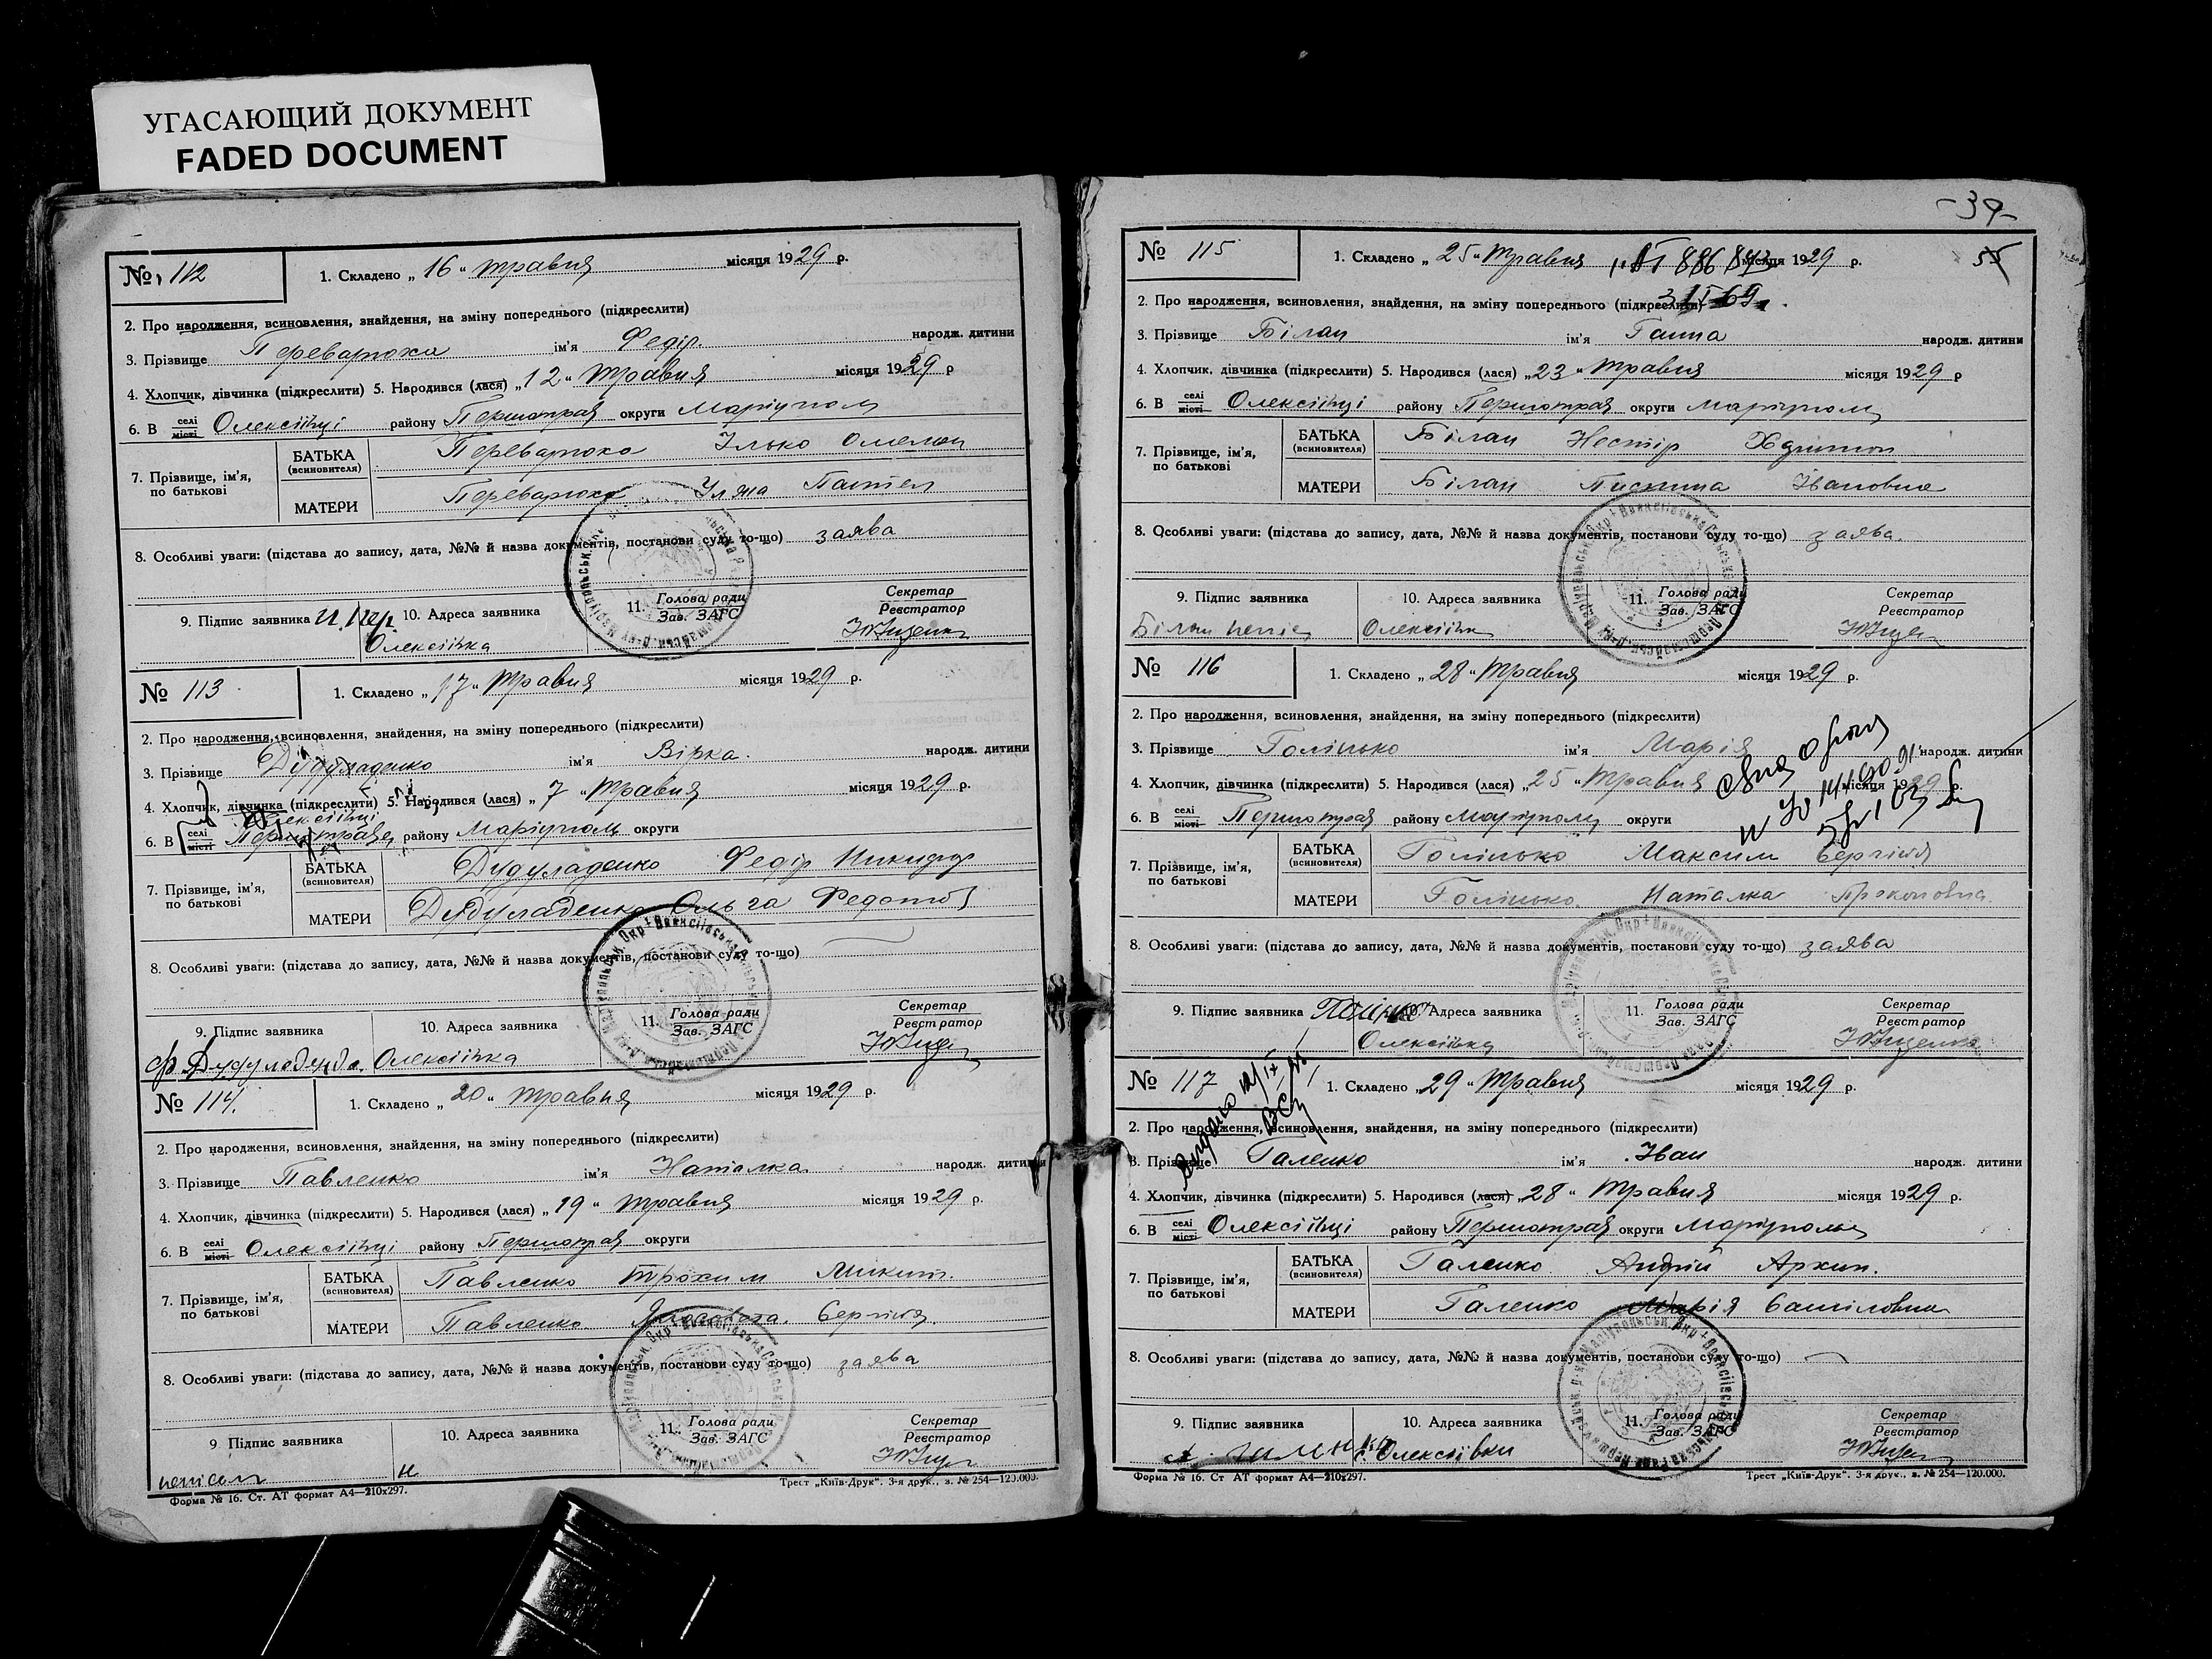 УГАСАЮЩИЙ ДОКУМЕНТ
FADED DOCUMENT
№ 112
1. Складено „16“ травня місяця 1929 р.
2. Про народження, всиновлення, знайдення, на зміну попереднього (підкреслити)
3. Прізвище Переварюха ім'я Федір. народж. дитини
4. Хлопчик, дівчинка (підкреслити) 5. Народився (лася) „12“ травня місяця 1929 р
6. В селі місті Олексіївці району Першотрав округи Маріуполь
7. Прізвище, ім'я, по батькові
БАТЬКА (всиновителя) Переварюха Ілько Омелян
МАТЕРИ Переварюха Уляна Пантел
8. Особливі уваги: (підстава до запису, дата, №№ й назва документів, постанови суду то-що) заява
9. Підпис заявника 10. Адреса заявника
Олексіївка
11. Голова ради
Зав. ЗАГС
Секретар
Реєстратор
№ 113
1. Складено „17“ травня місяця 1929 р.
2. Про народження, всиновлення, знайдення, на зміну попереднього (підкреслити)
3. Прізвище Дудуладенко ім'я Вірка. народж. дитини
4. Хлопчик, дівчинка (підкреслити) 5. Народився (лася) „7“ травня місяця 1929 р.
Олексіївці
6. В селі місті району Маріуполь округи
7. Прізвище, ім'я, по батькові
БАТЬКА (всиновителя) Дудуладенко Федір Никифор
МАТЕРИ Дудуладенко Ольга Федотов
8. Особливі уваги: (підстава до запису, дата, №№ й назва документів, постанови суду то-що)
9. Підпис заявника 10. Адреса заявника
Олексіївка
11. Голова ради
Зав. ЗАГС
Секретар
Реєстратор
№ 114.
1. Складено „20“ травня місяця 1929 р.
2. Про народження, всиновлення, знайдення, на зміну попереднього (підкреслити)
3. Прізвище Павленко ім'я Наталка народж. дитини
4. Хлопчик, дівчинка (підкреслити) 5. Народився (лася) „19“ травня місяця 1929 р.
6. В селі місті Олексіївці району Першотрав округи
7. Прізвище, ім'я, по батькові
БАТЬКА (всиновителя) Павленко Трохим Микит.
МАТЕРИ Павленко Сергіїв.
8. Особливі уваги: (підстава до запису, дата, №№ й назва документів, постанови суду то-що) заява
9. Підпис заявника 10. Адреса заявника
11. Голова ради
Зав. ЗАГС
Секретар
Реєстратор
Форма № 16. Ст. АТ формат А4—210х297.
Трест „Київ-Друк“. 3-я друк., з. № 254—120.000.
-39-
55
№ 115
1. Складено „25“ травня місяця 1929 р.
2. Про народження, всиновлення, знайдення, на зміну попереднього (підкреслити)
3. Прізвище Білан ім'я Ганна народж. дитини
4. Хлопчик, дівчинка (підкреслити) 5. Народився (лася) „23“ травня місяця 1929 р
6. В селі місті Олексіївці району Першотрав округи Маріуполь
7. Прізвище, ім'я, по батькові
БАТЬКА (всиновителя) Білан Нестір Харитон
МАТЕРИ Білан Івановна
8. Особливі уваги: (підстава до запису, дата, №№ й назва документів, постанови суду то-що) заява.
9. Підпис заявника 10. Адреса заявника
Білан
11. Голова ради
Зав. ЗАГС
Секретар
Реєстратор
№ 116
1. Складено „28“ травня місяця 1929 р.
2. Про народження, всиновлення, знайдення, на зміну попереднього (підкреслити)
3. Прізвище Голінько ім'я Марія народж. дитини
4. Хлопчик, дівчинка (підкреслити) 5. Народився (лася) „25“ травня місяця 1929 р.
6. В селі місті Першотрав району Маріуполь округи
7. Прізвище, ім'я, по батькові
БАТЬКА (всиновителя) Голінько Максим Сергіїв
МАТЕРИ Голінько Наталка Прокоповна.
8. Особливі уваги: (підстава до запису, дата, №№ й назва документів, постанови суду то-що) заява
9. Підпис заявника 10. Адреса заявника
Олексіївка
11. Голова ради
Зав. ЗАГС
Секретар
Реєстратор
№ 117
1. Складено „29“ травня місяця 1929 р.
2. Про народження, всиновлення, знайдення, на зміну попереднього (підкреслити)
3. Прізвище Галенко ім'я Іван народж. дитини
4. Хлопчик, дівчинка (підкреслити) 5. Народився (лася) „28“ травня місяця 1929 р.
6. В селі місті Олексіївці району Першотрав округи Маріуполь
7. Прізвище, ім'я, по батькові
БАТЬКА (всиновителя) Галенко Андрій Архип.
МАТЕРИ Галенко Марія
8. Особливі уваги: (підстава до запису, дата, №№ й назва документів, постанови суду то-що)
9. Підпис заявника 10. Адреса заявника
с. Олексіївки
11. Голова ради
Зав. ЗАГС
Секретар
Реєстратор
Форма № 16. Ст АТ формат А4—210х297.
Трест „Київ-Друк“. 3-я друк., з. № 254—120.000.